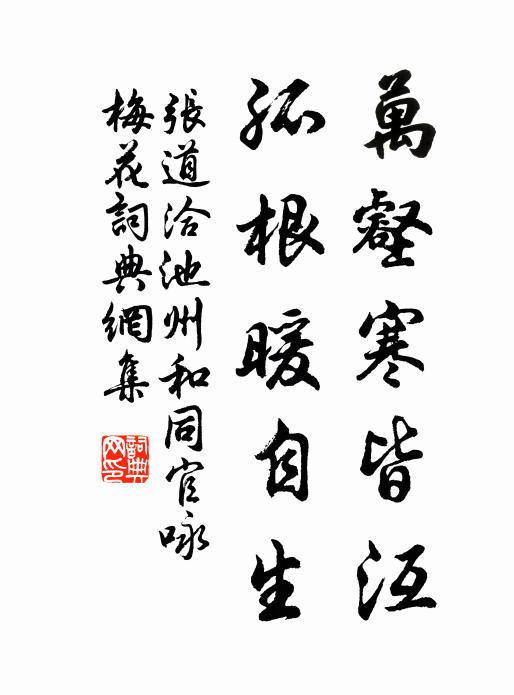 萬壑寒皆沍
孤根暖自生
張道洽池州和同官咏
梅花詞典網集
詞典网印